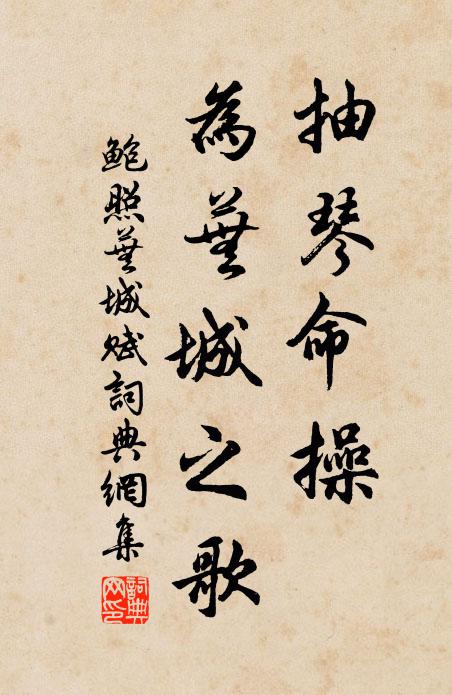 抽琴命操
為蕪城之歌
鮑照蕪城賦詞典網集
詞典网印